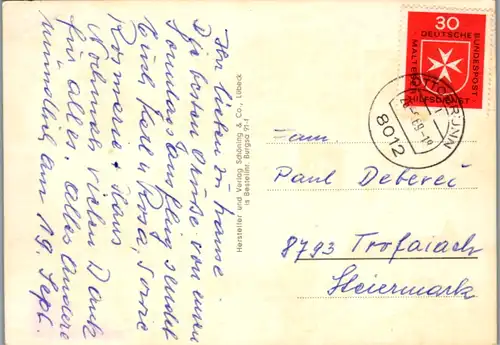 Ihr Lieben zu Hause.
Die besten Grüße von einem
Sonntagsausflug sendet
Euch Karl + Rosa, sowie
Rosmarie + Hans
Nochmals vielen Dank
für alles. Alles Andere
mündlich am 19. Sept.
Hersteller und Verlag Schöning & Co., Lübeck
Bestellnr. Burgau 91-f
30
DEUTSCHE BUNDESPOST
MALTESER HILFSDIENST
OTTOBRUNN
8012
Fam.
Paul Deberei
8793 Trofaiach
Steiermark